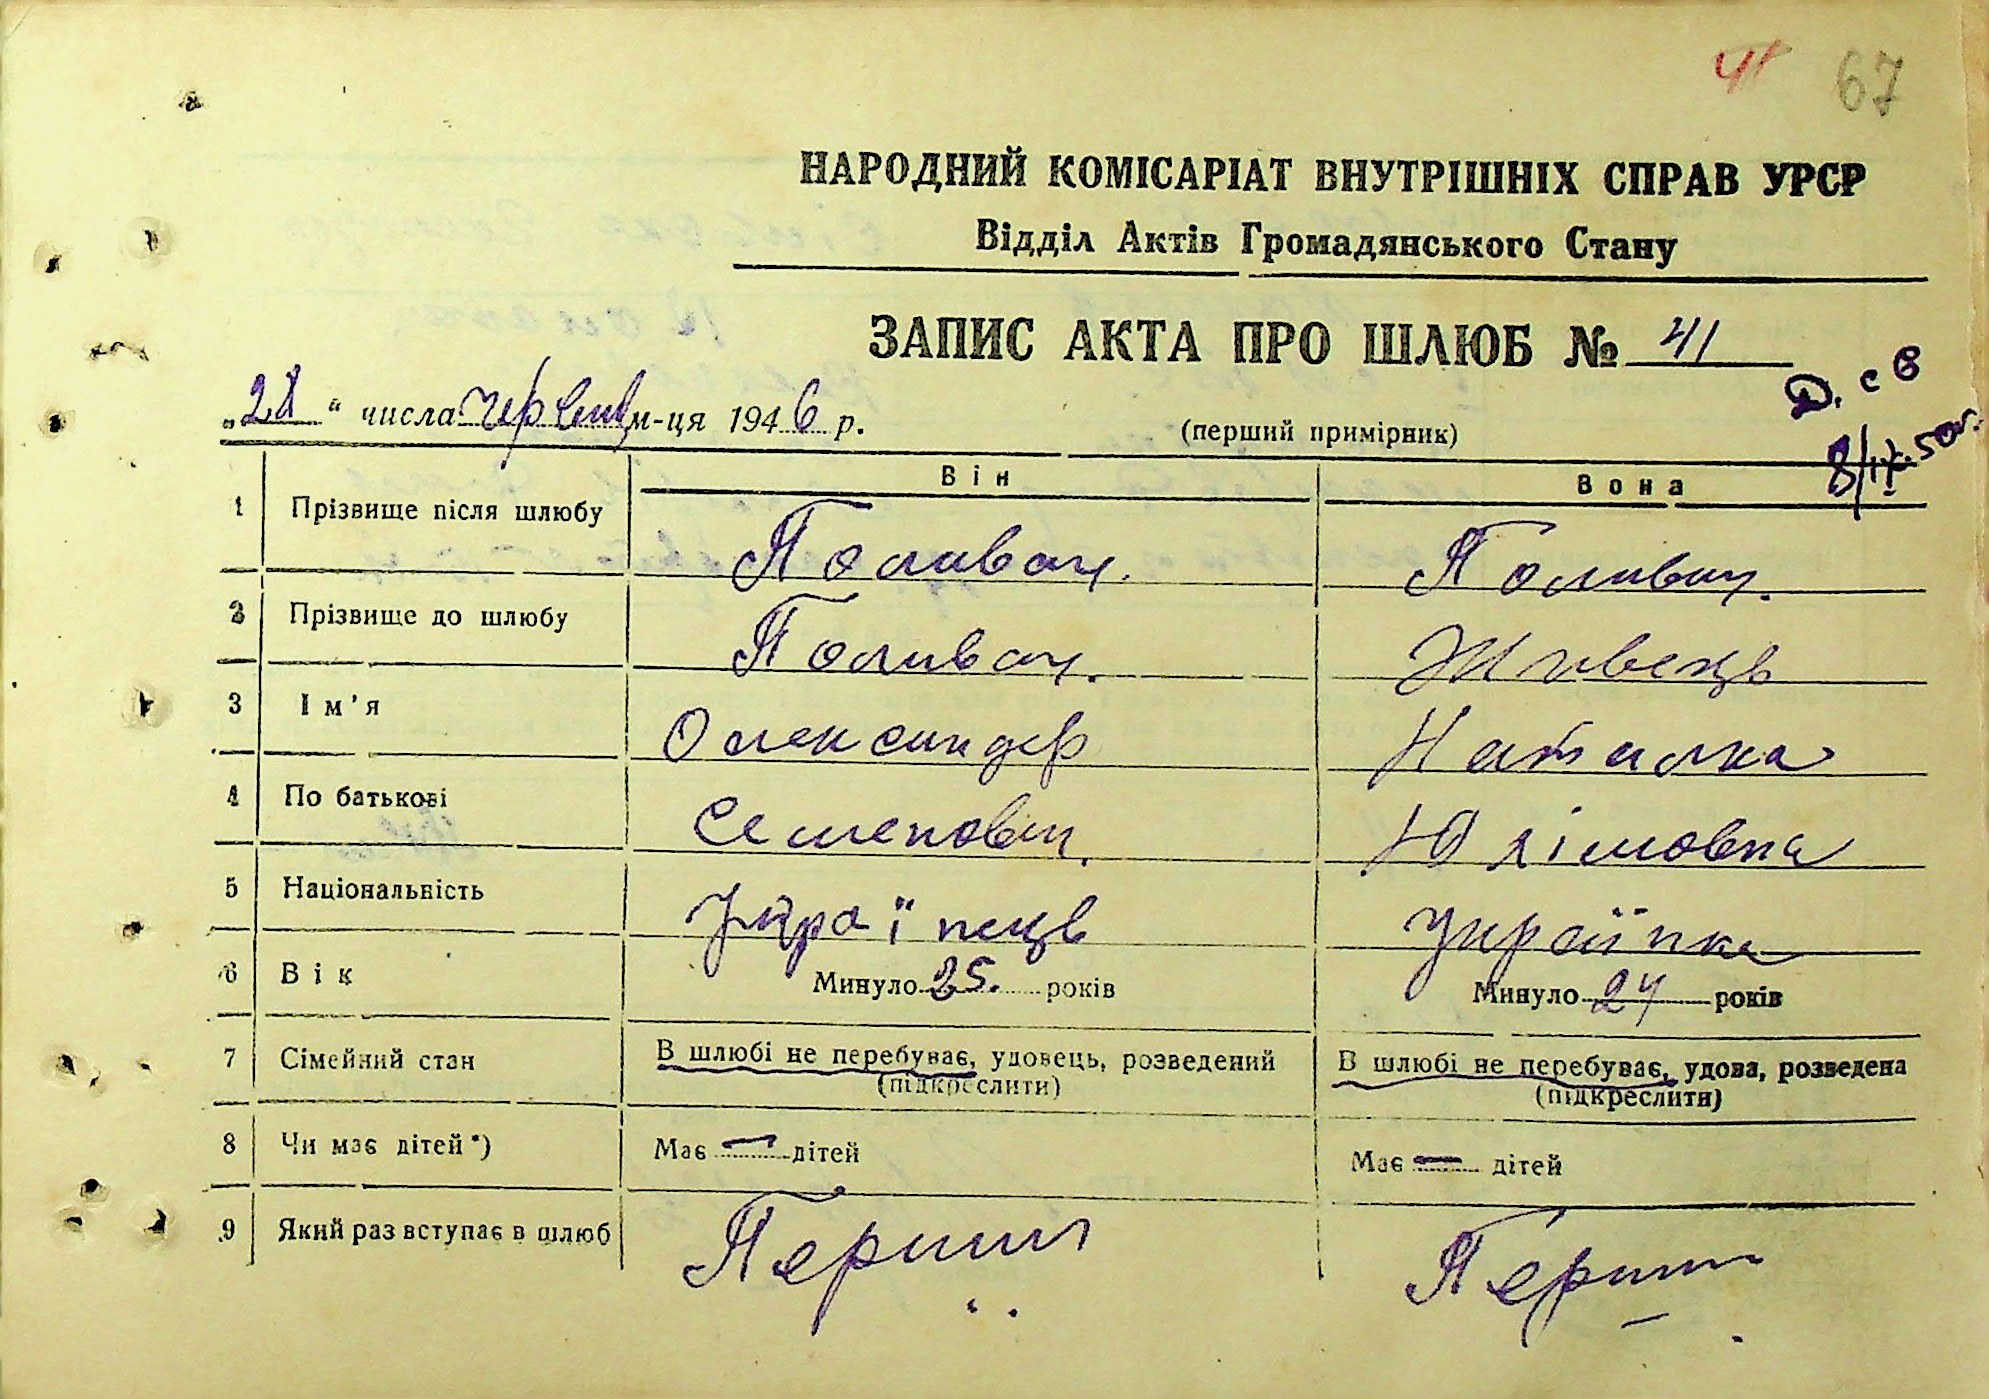 41 67
НАРОДНИЙ КОМІСАРІАТ ВНУТРІШНІХ СПРАВ УРСР
Відділ Актів Громадянського Стану
ЗАПИС АКТА ПРО ШЛЮБ № 41
„28“ числа червень м-ця 1946 р. (перший примірник)
Д. с в
8/IX.50г.
Він Вона
1 Прізвище після шлюбу Поливач. Поливач.
2 Прізвище до шлюбу Поливач. Живець
3 Ім'я Олександер Наталка
4 По батькові Семенович. Юхімовна
5 Національність Українець Українка
6 Вік Минуло 25. років Минуло 24 років
7 Сімейний стан В шлюбі не перебуває, удовець, розведений В шлюбі не перебуває, удова, розведена
(підкреслити) (підкреслити)
8 Чи має дітей*) Має — дітей Має — дітей
9 Який раз вступає в шлюб Перший Перший